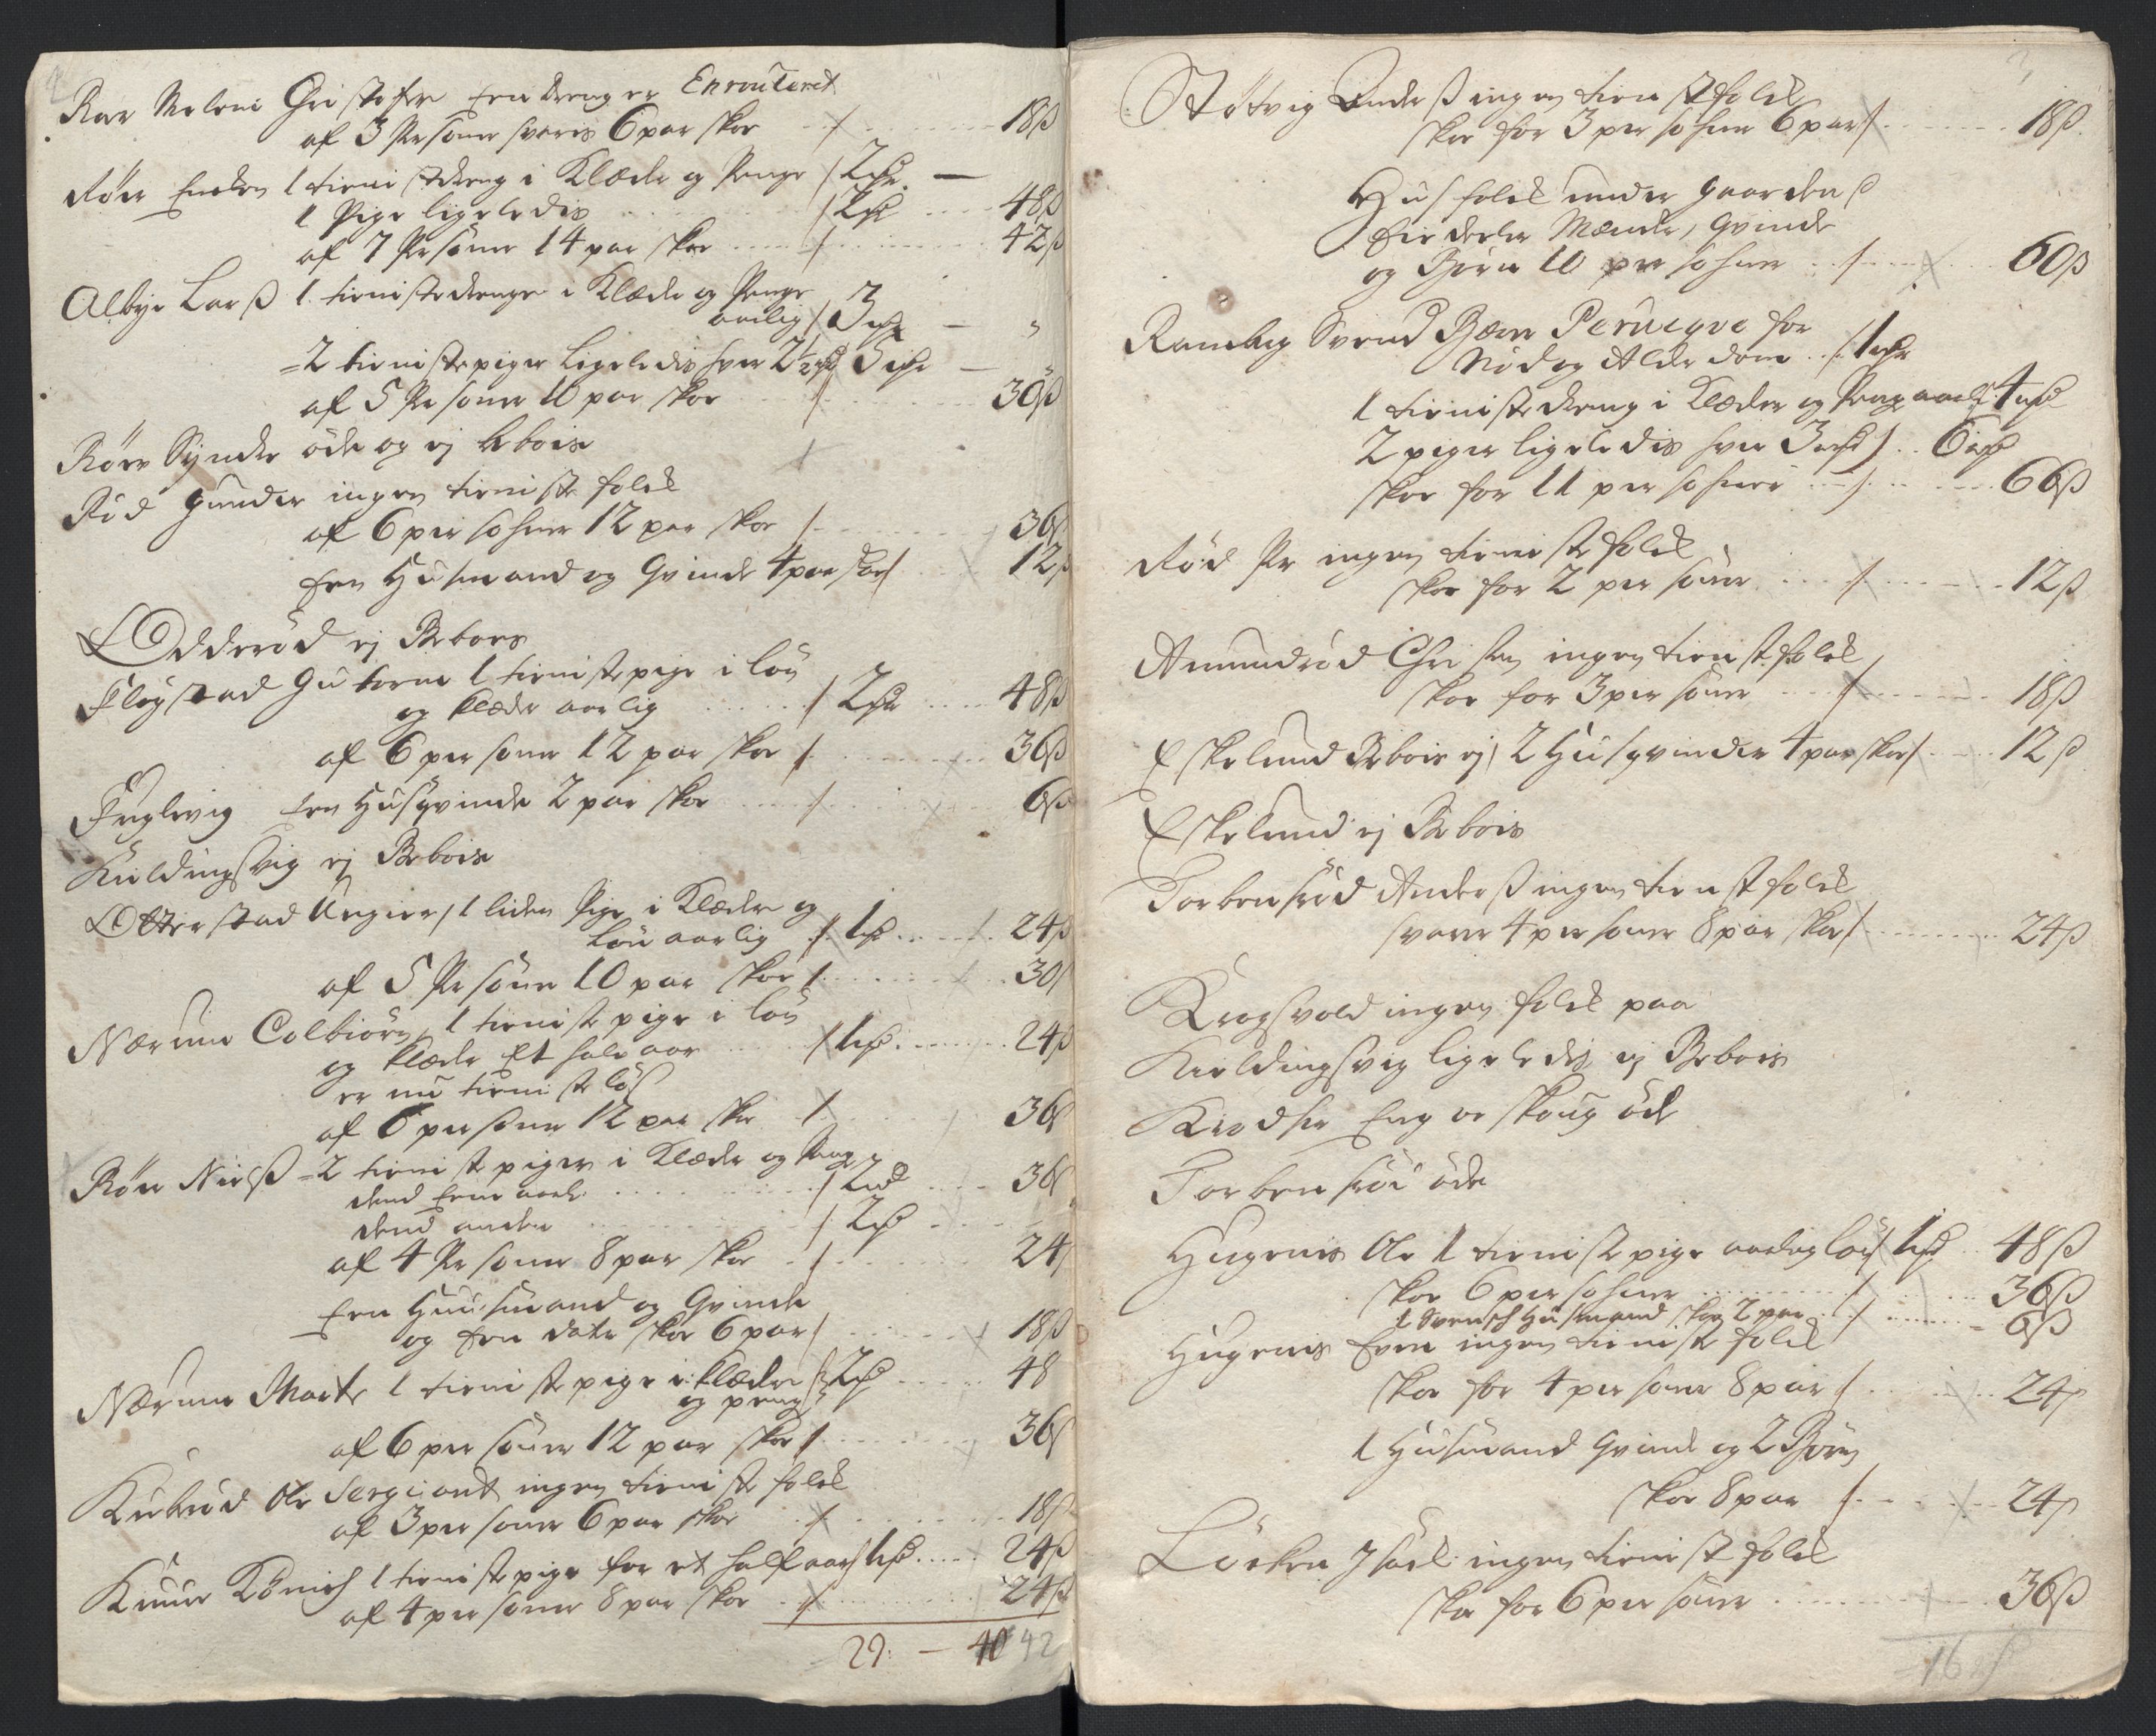 Christofer Een dreng er Enroulerit
af 3 Persener svaris 6 par skoe 18 ß
Röer Encken 1 tieniste dreng i Klæde og Penge / 2 rdr —
1 Pige ligeledis / 2 rdr 48 ß
af 7 Persöner 14 par skoe / 42 ß
Albye Larß 1 tienistedrenge i Klæde og Penge
aarlig / 3 rdr —
2 tienistepiger Ligeledis hver 2½ rdr 5 rdr —
af 5 Persöner 10 par skoe 30 ß
Röer Syndre öde og ej beboes
Röd Gunder ingen tieniste folck
af 6 persohner 12 par skoe / 36 ß
Een Husmand og Qvinde 4 par skoe / 12 ß
Odderöd ej Beboes
Fløgstad Gutorm 1 tienistepige i lön
og klæder aarlig / 2 rdr 48 ß
af 6 persöner 12 par skoe / 36 ß
Fuglevig Een Husqvinde 2 par skoe / 6 ß
Kieldingsvig ej Beboes
Otterstad 1 liden Pige i Klæder og
Lön aarlig / 1 rdr 24 ß
af 5 Persöner 10 par skoe / 30 ß
Nærum Colbiörn, 1 tieniste pige i lön
og klæder Et halv aar / 1 rdr 24 ß
er nu tieniste lös
af 6 persöner 12 par skoe / 36 ß
Röer Nielß 2 tieniste piger i Klæder og Penge
dend Eene aarl. / 2 rdr 36 ß
dend anden / 2 rdr
af 4 Persöner 8 par skoe / 24 ß
Een Huusmand og Qvinde
og Een dater skoe 6 par / 18 ß
Nærum Marte 1 tieniste pige i klæder / 2 rdr 48
og penge
af 6 persöner 12 par skoe / 36 ß
Kuberöd Ole Sergiant ingen tieniste folck
af 3 persöner 6 par skoe / 18 ß
1 tienistepige for et halft aar / 1 rdr 24 ß
af 4 persöner 8 par skoe / 24 ß
29 — 40 42
Stötvig Anderß ingen tienistefolck
skoe for 3 persohner 6 par / 18 ß
Husfolck under gaardenß
Eiedeeler Mænder, Qvinde
og Börn 10 persohner / 60 ß
Rambeg Svend Bær Peruqve for
Nöd og Alderdom / 1 rdr
1 tienistedreng i Klæder og Penge aarl. 4 rdr
2 piger ligeledis hver 3 rdr / 6 rdr
skoe for 11 persohner / 66 ß
Röd Per ingen tieniste folck
skoe for 2 persöner / 12 ß
Amundröd Christen ingen tienistfolck
skoe for 3 persöner / 18 ß
Eskelund Beboes ej / 2 Husqvinder 4 par skoe / 12 ß
Eskelund ej Beboes
Torbensröd Anderß ingen tienistfolck
svarer 4 persöner 8 par skoe / 24 ß
Krogsvold ingen folck paa
Kieldingsvig ligeledis ej Beboes
Eng oe skoug öde
Torbensröd öde
Hugenes Ole 1 tieniste pige aarlig lön / 1 rdr 48 ß
skoe 6 persohner / 36 ß
1 Svensch Husmand skoe 2 par / 6 ß
Hugenes Even ingen tieniste folck
skoe for 4 persöner 8 par / 24 ß
1 Husmand Qvinde og 2 Börn
skoe 8 par / 24 ß
Löcken Jsack ingen tienist folck
skoe for 6 persöner 36 ß
16